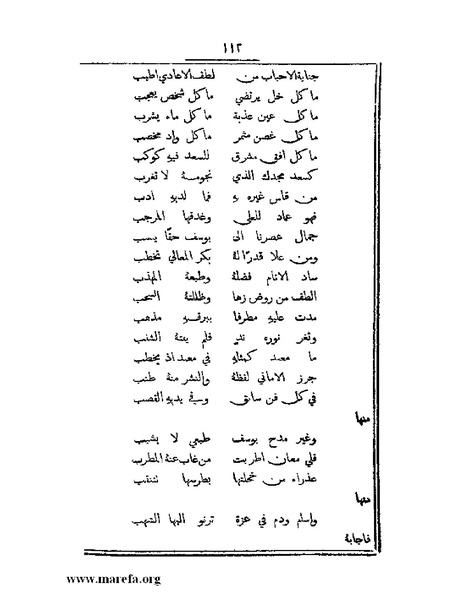 ١١٢
جناية الاحباب من لطف الاعادي اطيب
ما كل خل يرتضي ما كل شخص يصحب
ما كل عين عذبة ما كل ماء يشرب
ما كل غصن مثمر ما كل واد مخصب
ما كل افق مشرق للسعد فيه كوكب
كسعد مجدك الذي نجومهُ لا تغرب
من قاس غيره بهِ فما لديهِ ادب
فهو عاد للعلى وغدقها المرجب
جمال عصرنا الى يوسف حقًا ينسب
ومن علا قدرًا لهُ بكر المعالي تخطب
ساد الانام فضلهُ وطبعهُ المهذب
الطف من روض زها وظللتهُ السحب
مدت عليهِ مطرفا ببرقهِ مذهب
وثغر نوره ندٍ فلم يفتهُ الشنب
ما معبد كمثلهِ في معبد اذ يخطب
حرز الاماني لفظهُ والنشر منهُ طنب
في كل فن سابق وفي يديهِ القصب
منها
وغير مدح يوسف طبعي لا يشبب
فلي معان اطربت من غاب عنهُ المطرب
عذراء من خجلتها بطرسها تنتقب
منها
واسلم ودم في عزة ترنو اليها الشهب
فاجابهُ
www.marefa.org